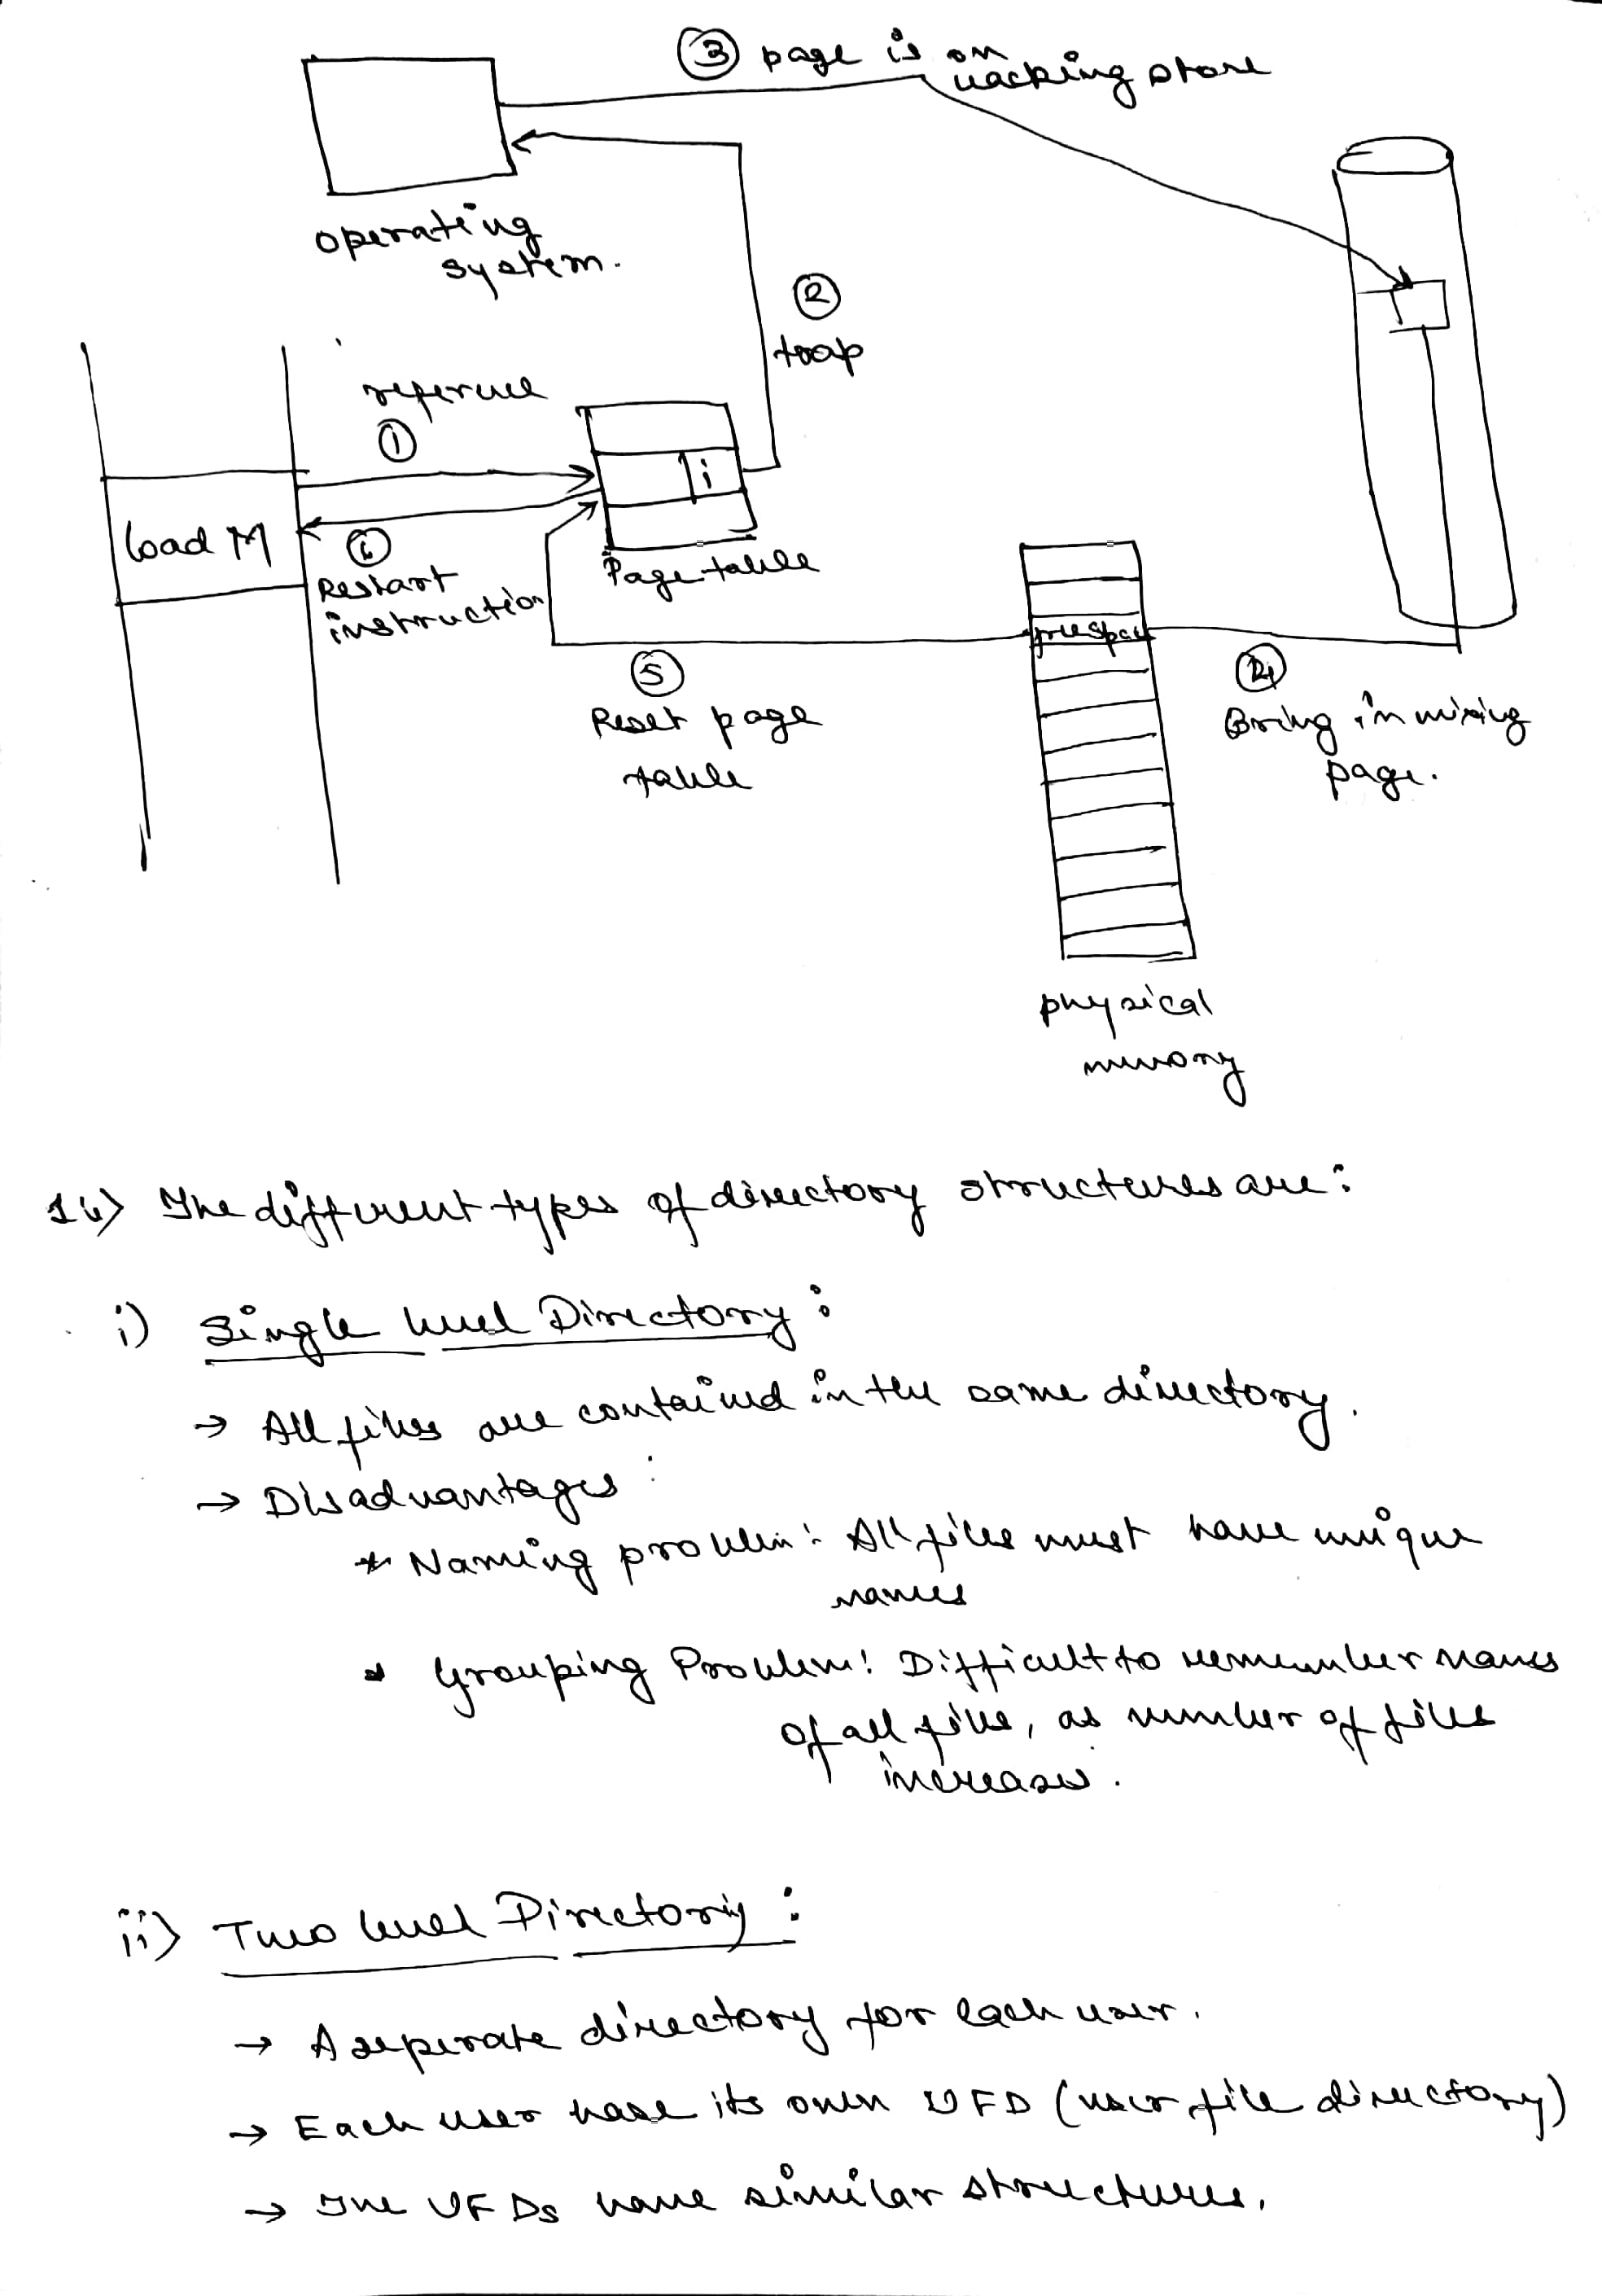 ③ page is on
backing store
operating
system.
② trap
reference
①
i
load M
⑥
Restart
instruction
Page table
free space
⑤
Reset page
table
④
Bring in missing
page.
physical
memory
16) The different types of directory structures are:
i) Single level Directory:
→ All files are contained in the same directory.
→ Disadvantages:
* Naming problem: All files must have unique
names
* Grouping Problem: Difficult to remember names
of all files, as number of files
increases.
ii) Two level Directory:
→ A seperate directory for each user.
→ Each user have its own UFD (user file directory)
→ The UFDs have similar structures.